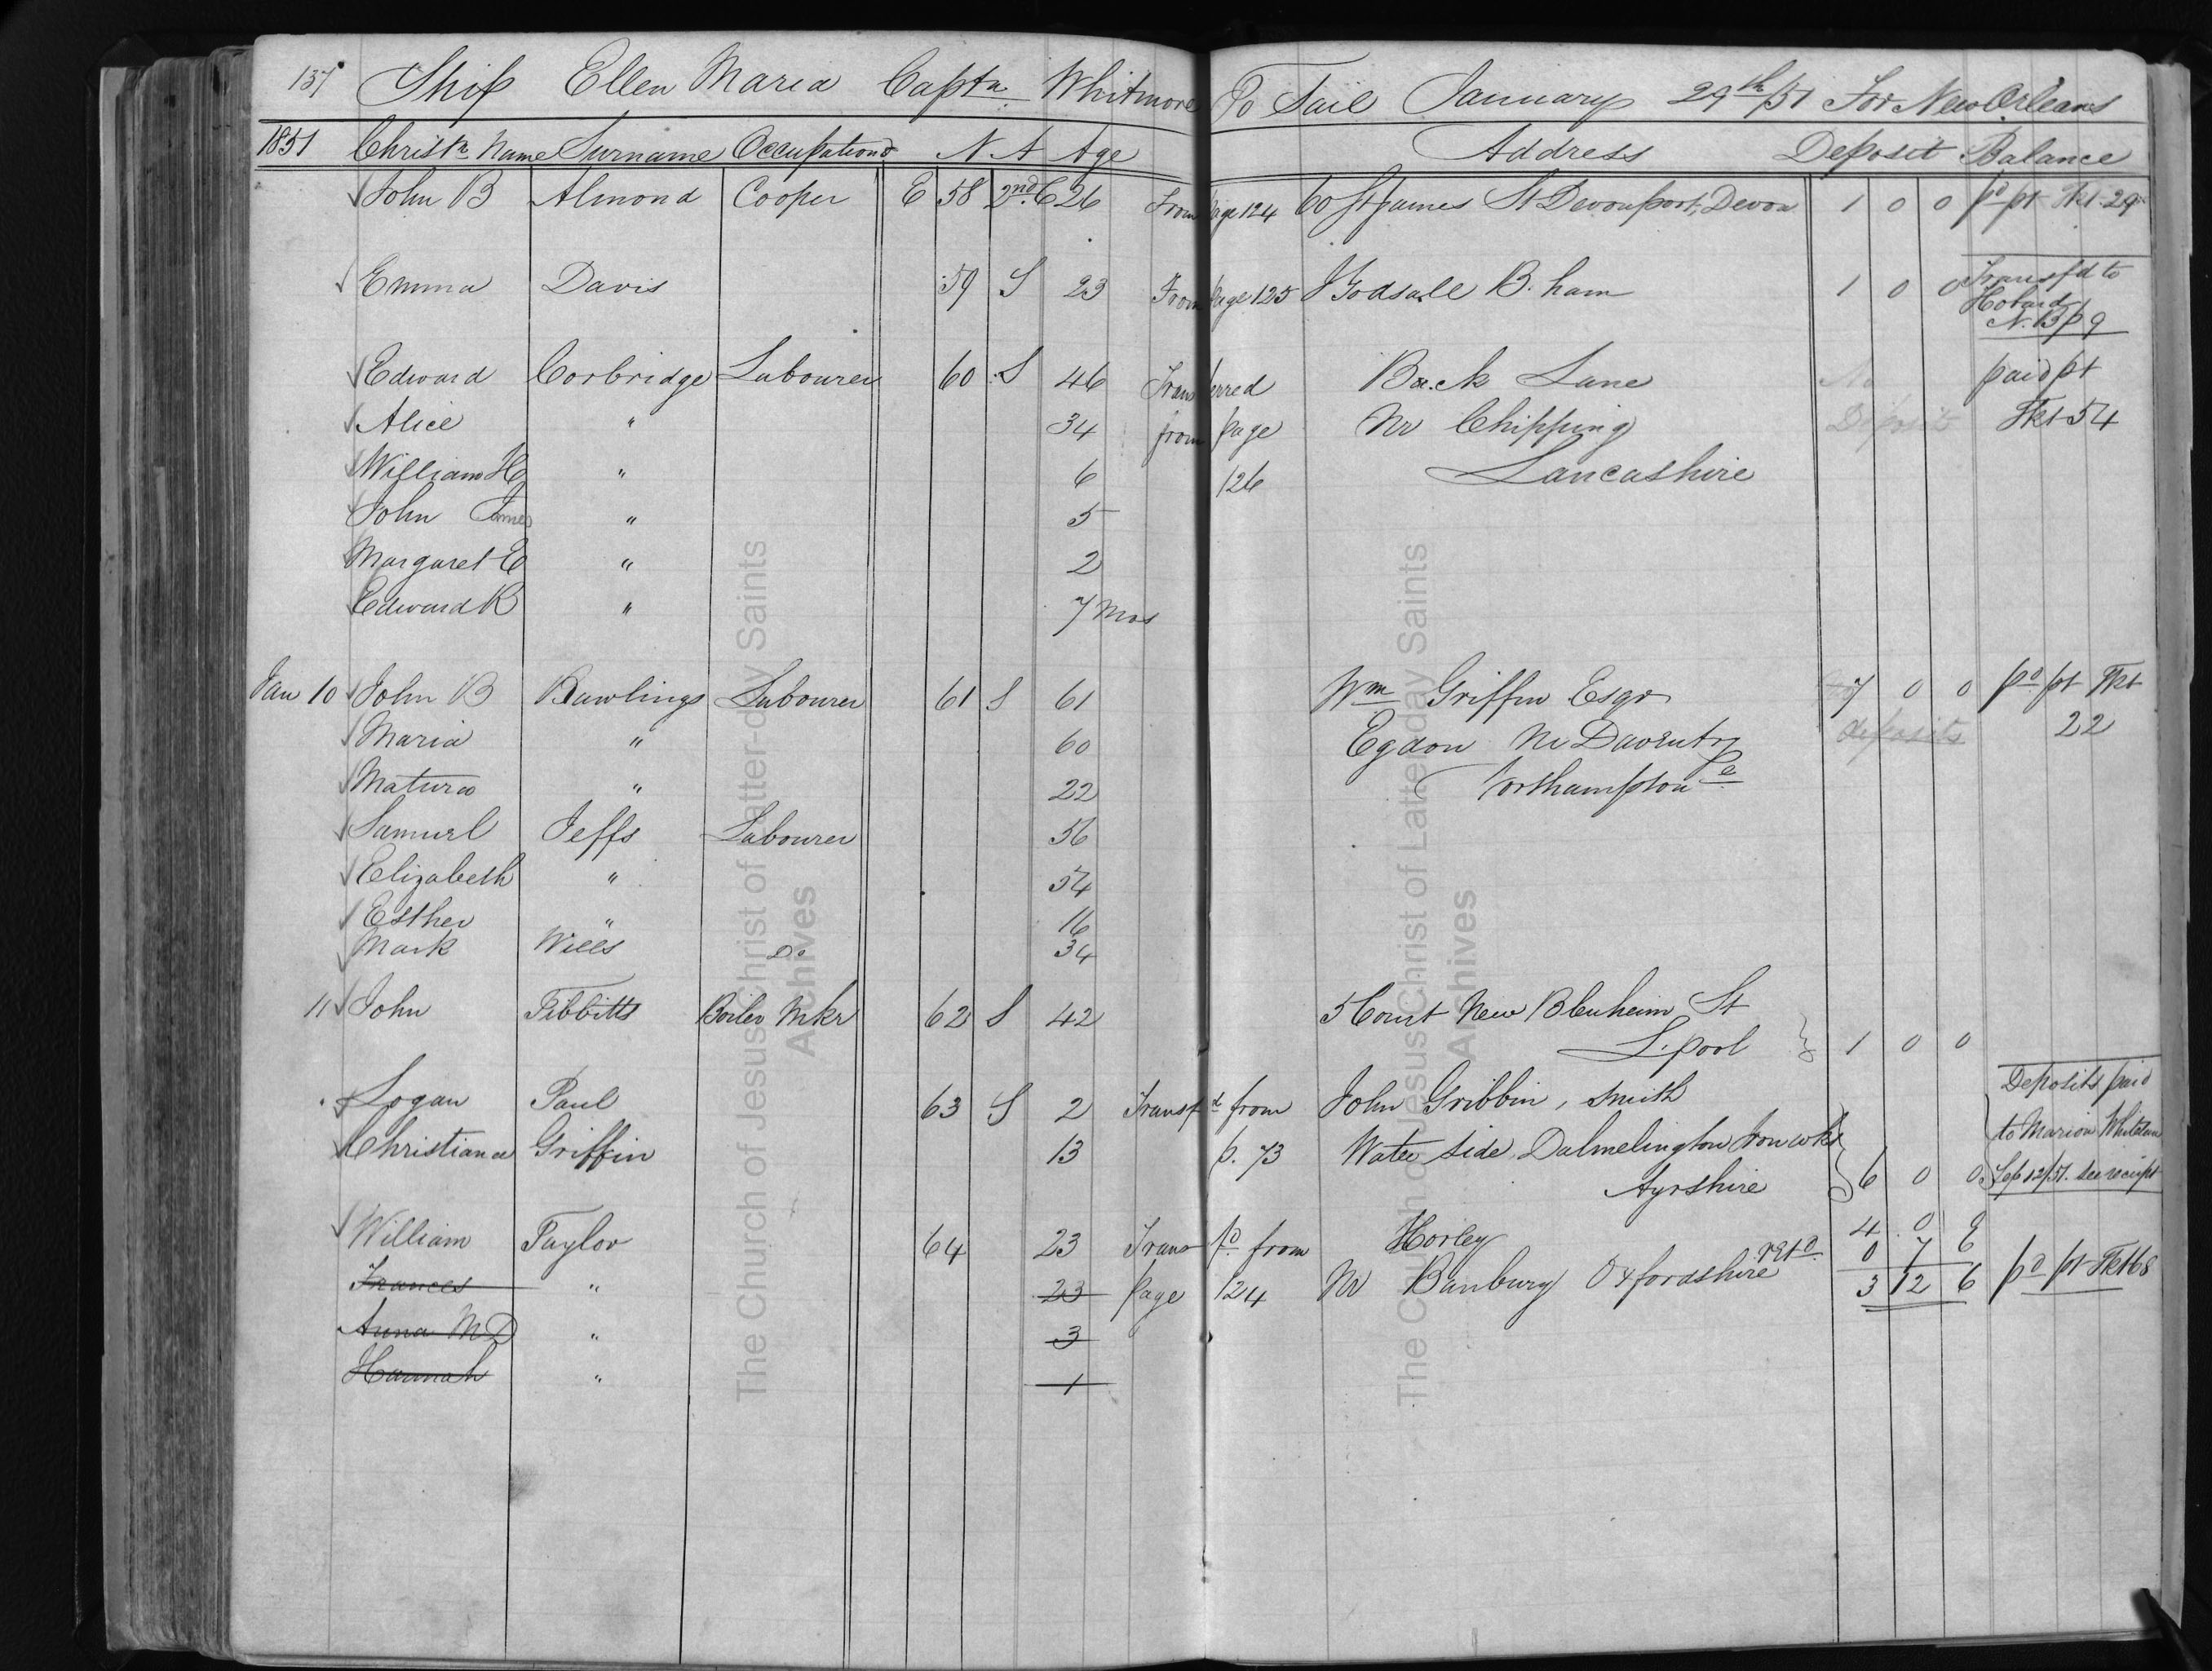 137 Ship Ellen Maria Captn Whitmore To Sail January 29th/51 For New Orleans
1851 Christn Name Surname Occupation N A Age Address Deposit Balance
John B Almond Cooper E 58 2nd C 26 From page 124 60 St James St Devonport, Devon 1 0 0 pd pt Tkt 29
Emma Davis 59 S 23 From page 125 J Godsall B.ham 1 0 0 Transfd to
Hobard
N.B p 9
Edward Corbridge Labourer 60 S 46 Transferred Back Lane No paid pt
Alice " 34 from page Nr Chipping Deposit Tkt 54
William H " 6 126 Lancashire
John James " 5
Margaret E " 2
Edward R " 7 Mos
Jan 10 John B Rawlings Labourer 61 S 61 Wm Griffin Esqr 7 0 0 pd pt Tkt
Maria " 60 Egdon Nr Daventry deposits 22
Matura " 22 Northampton
Samuel Jeffs Labourer 56
Elizabeth " 54
Esther " 16
Mark Wills Do 34
11 John Tibbitts Boiler Mkr 62 S 42 5 Court New Blenheim St
L.pool 1 0 0
Logan Paul 63 S 2 Transfd from John Gribbin, Smith Deposits paid
Christiana Griffin 13 p. 73 Water side, Dalmelington Iron wks to Marion
Ayrshire 6 0 0 Sep 12/51. see receipt
William Taylor 64 23 Transfd from Horley 4 0 0
retd 0 7 6
Frances " 23 page 124 Nr Banbury Oxfordshire 3 12 6 pd pt Tkt 68
Anna M D " 3
Hannah " 1
The Church of Jesus Christ of Latter-day Saints
Archives
The Church of Jesus Christ of Latter-day Saints
Archives